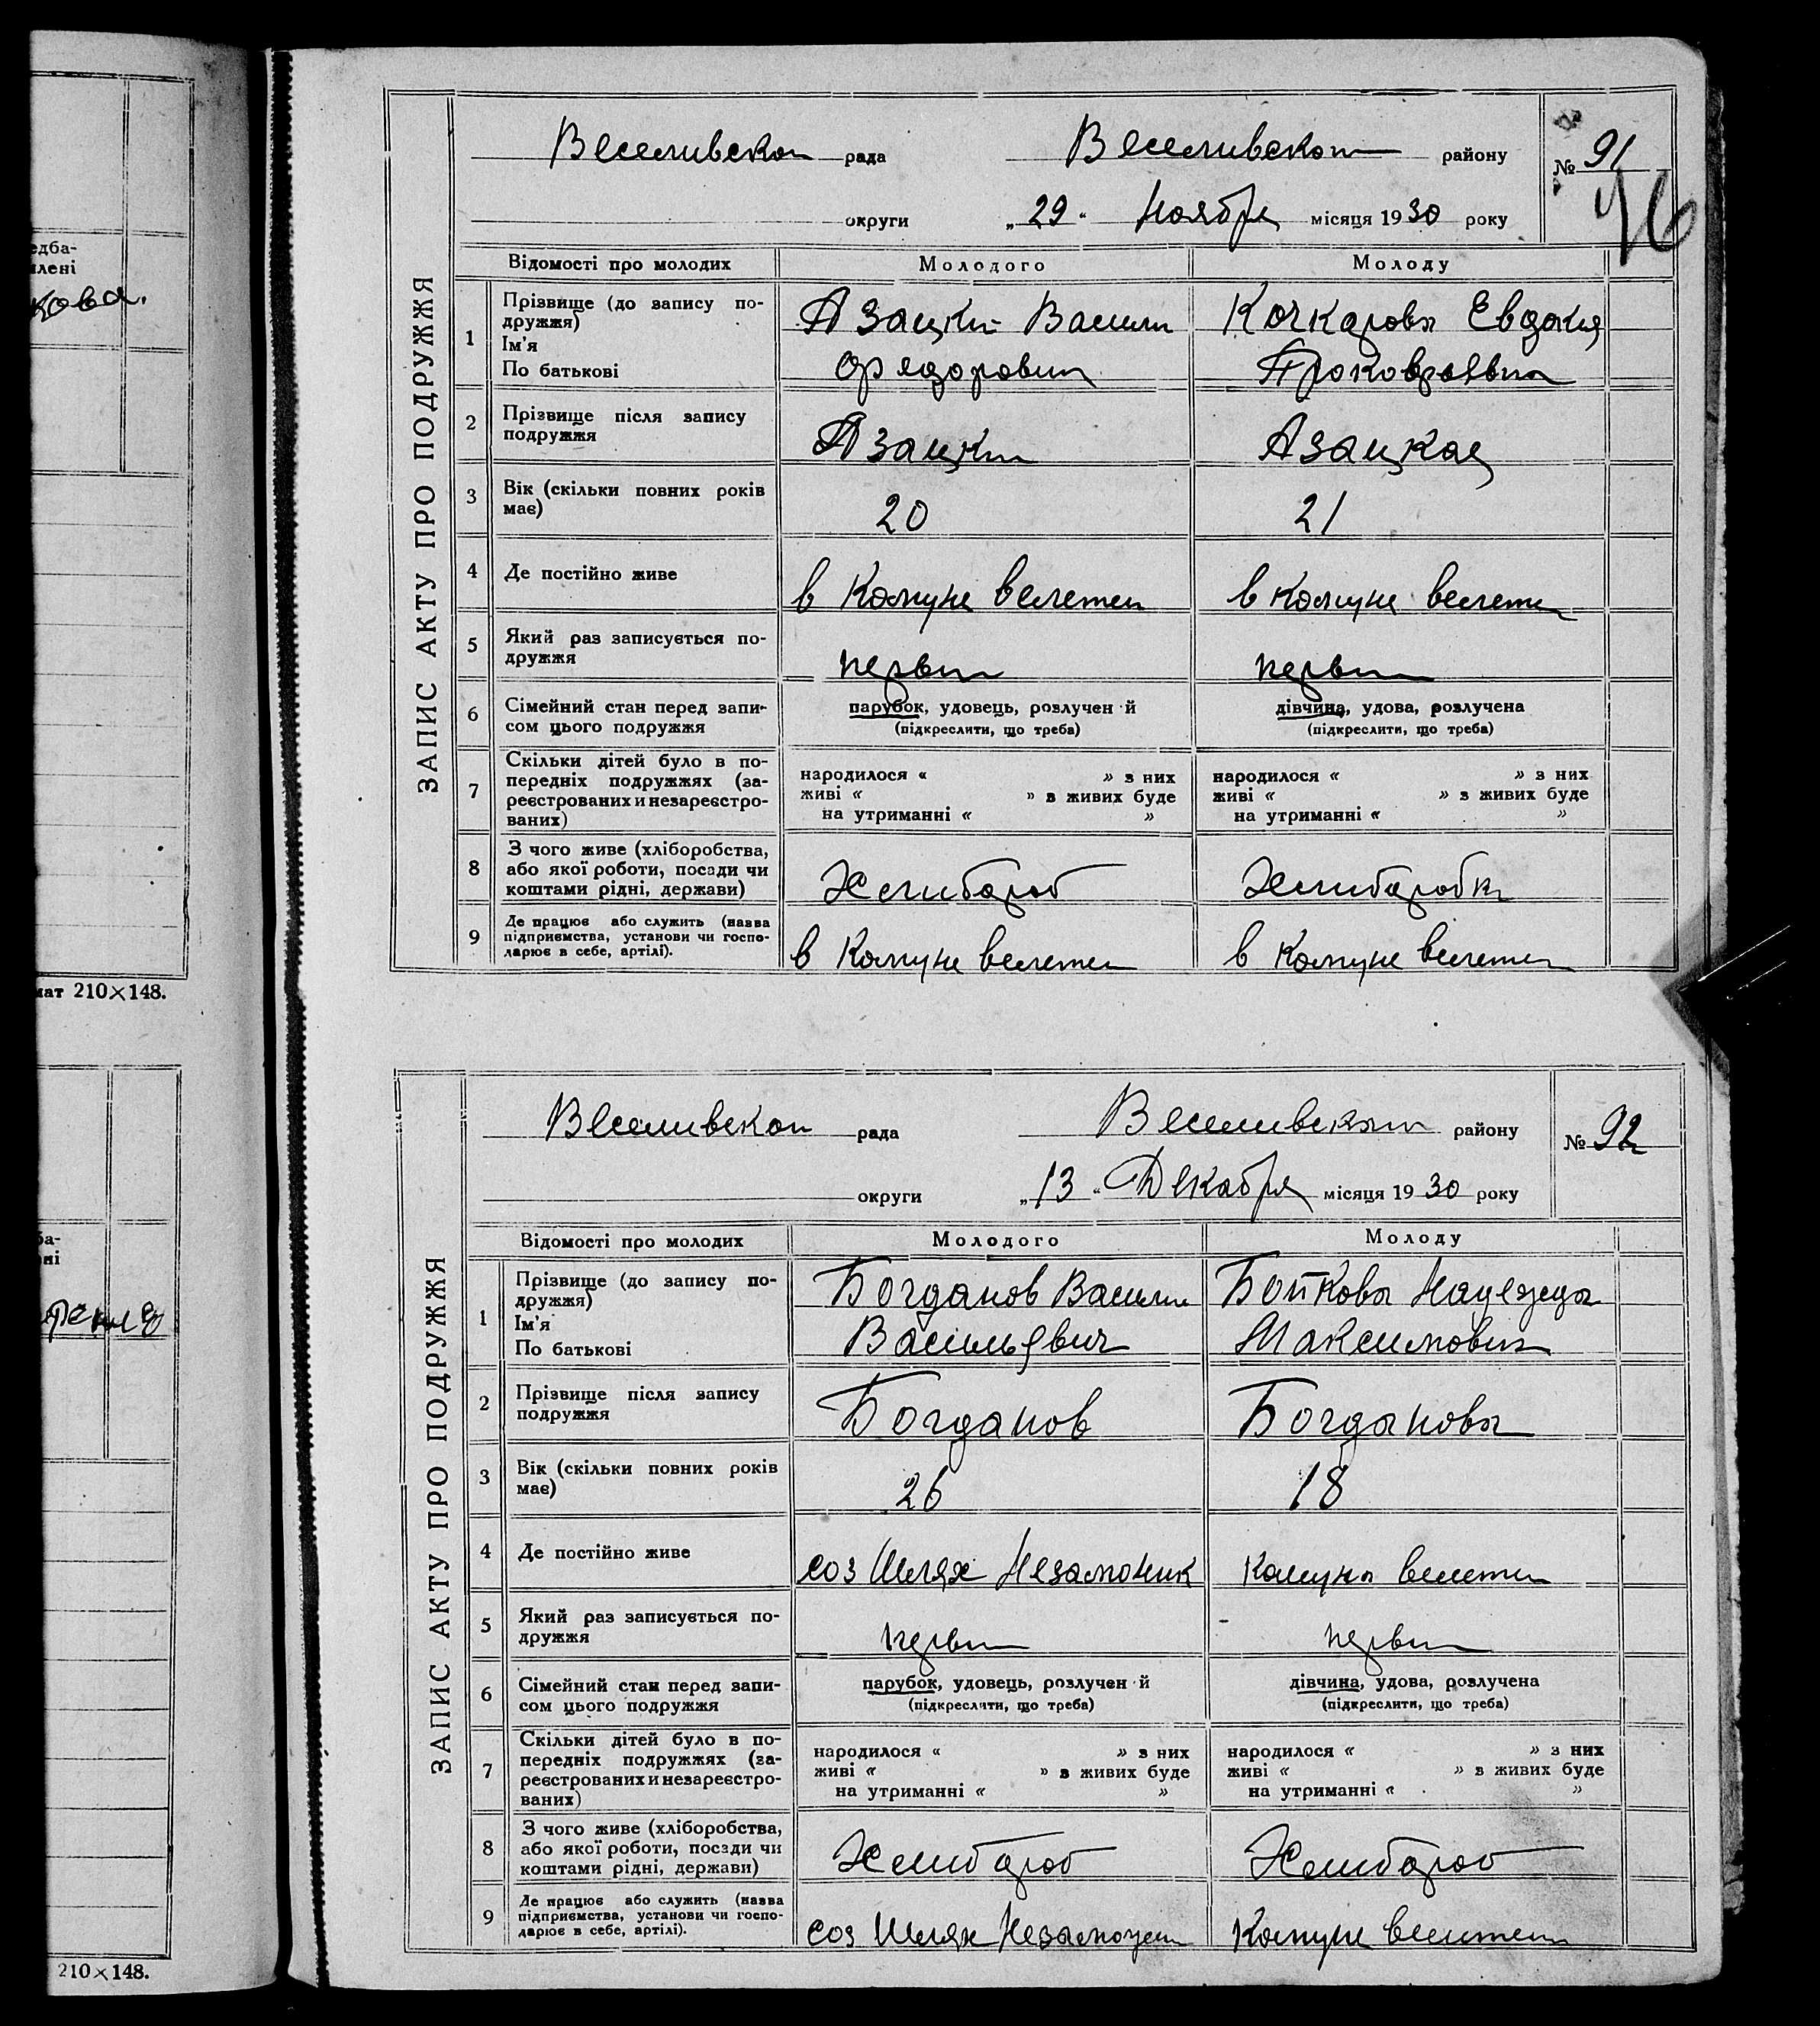 едба-
млені
кова.
мат 210×148.
ба-
ні
210×148.
ЗАПИС АКТУ ПРО ПОДРУЖЖЯ
Веселивскои рада Веселивского району № 91
76
округи „29" Ноября місяця 1930 року
Відомості про молодих Молодого Молоду
1 Прізвище (до запису по-
дружжя)
Ім'я
По батькові
Азацки Васили Кочкарова Евдокия
Федорович
2 Прізвище після запису
подружжя
Азацки Азацкая
3 Вік (скільки повних років
має)
20 21
4 Де постійно живе в Комуне велетен в комуне велетен
5 Який раз записується по-
дружжя
перви перви
6 Сімейний стан перед запи-
сом цього подружжя
парубок, удовець, розлучен й дівчина, удова, розлучена
(підкреслити, що треба) (підкреслити, що треба)
7 Скільки дітей було в по-
передніх подружжях (за-
реєстрованих и незареєстро-
ваних)
народилося « » з них народилося « » з них
живі « » в живих буде живі « » з живих буде
на утриманні « » на утриманні « »
8 З чого живе (хліборобства,
або якої роботи, посади чи
коштами рідні, держави)
Хлибороб Хлиборобка
9 Де працює або служить (назва
підприємства, установи чи госпо-
дарює в себе, артілі).
в Комуне велетен в Комуне велетен
ЗАПИС АКТУ ПРО ПОДРУЖЖЯ
Веселивскои рада Веселивского району № 92
округи „13" Декабря місяця 1930 року
Відомості про молодих Молодого Молоду
1 Прізвище (до запису по-
дружжя)
Ім'я
По батькові
Богданов Васили Бойкова Надежда
Васильевич Максимовна
2 Прізвище після запису
подружжя
Богданов Богданова
3 Вік (скільки повних років
має)
26 18
4 Де постійно живе соз Шлях Незаможник Комуна велетен
5 Який раз записується по-
дружжя
перви перви
6 Сімейний стан перед запи-
сом цього подружжя
парубок, удовець, розлучен й дівчина, удова, розлучена
(підкреслити, що треба) (підкреслити, що треба)
7 Скільки дітей було в по-
передніх подружжях (за-
реєстрованих и незареєстро-
ваних)
народилося « » з них народилося « » з них
живі « » в живих буде живі « » в живих буде
на утриманні « » на утриманні « »
8 З чого живе (хліборобства,
або якої роботи, посади чи
коштами рідні, держави)
Хлибороб Хлибороб
9 Де працює або служить (назва
підприємства, установи чи госпо-
дарює в себе, артілі).
соз Шлях Комуне велетен